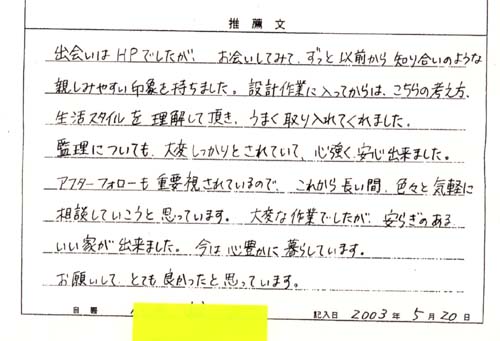 推薦文
出会いはHPでしたが、お会いしてみて、ずっと以前から知り合いのような
親しみやすい印象を持ちました。設計作業に入ってからは、こちらの考え方、
生活スタイルを理解して頂き、うまく取り入れてくれました。
監理についても、大変しっかりとされていて、心強く、安心出来ました。
アフターフォローも重要視されているので、これから長い間、色々と気軽に
相談していこうと思っています。大変な作業でしたが、安らぎのある
いい家が出来ました。今は心豊かに暮らしています。
お願いして、とても良かったと思っています。
記入日 2003年 5月20日